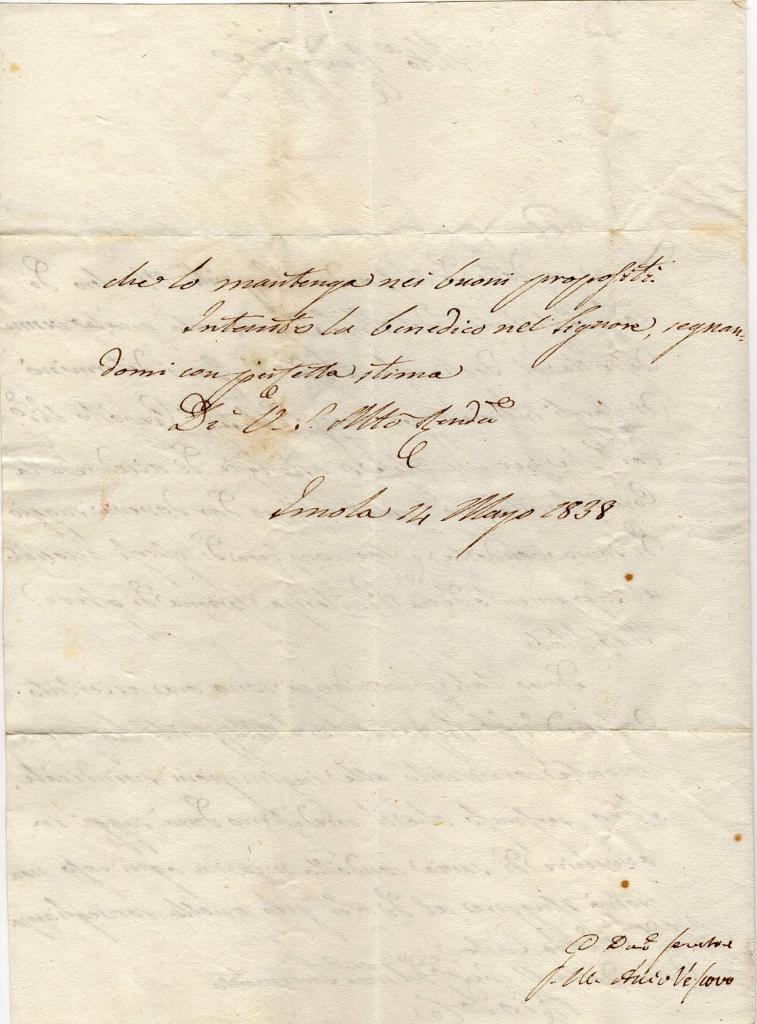 che lo mantenga nei buoni propositi.
Intanto la benedico nel Signore, segnan-
domi con perfetta stima
Di V. S. Mto Renda
Imola 14 Mago 1838
Servitore
G. M. Arciv Vescovo